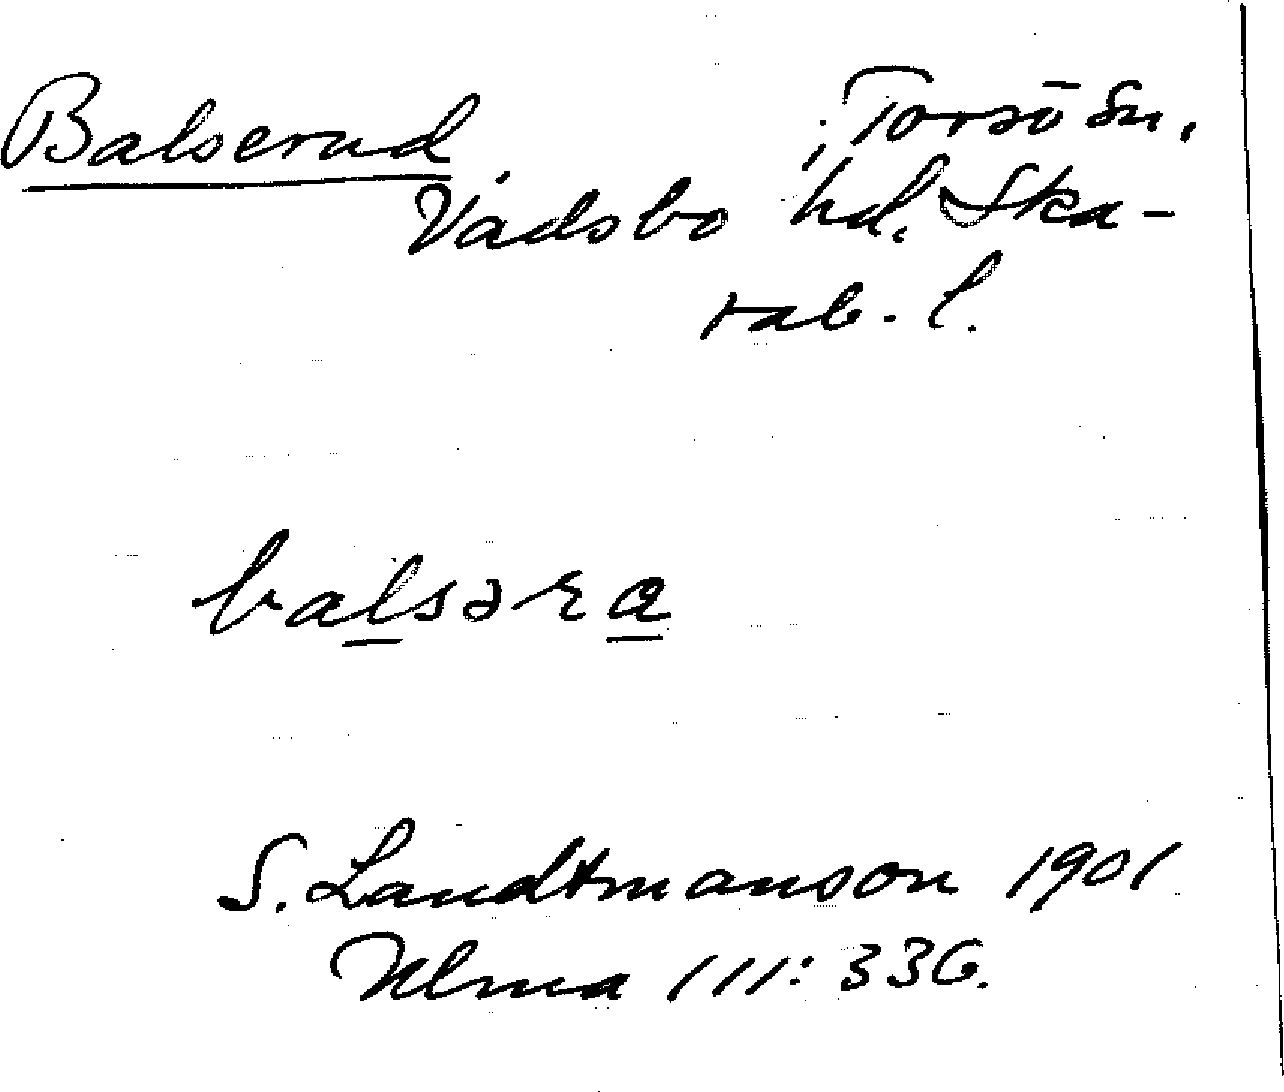 Balserud, Torsö sn,
Vadsbo hd. Ska-
rab. l.
balsəra
S. Landtmanson 1901
Ulma 111: 336.